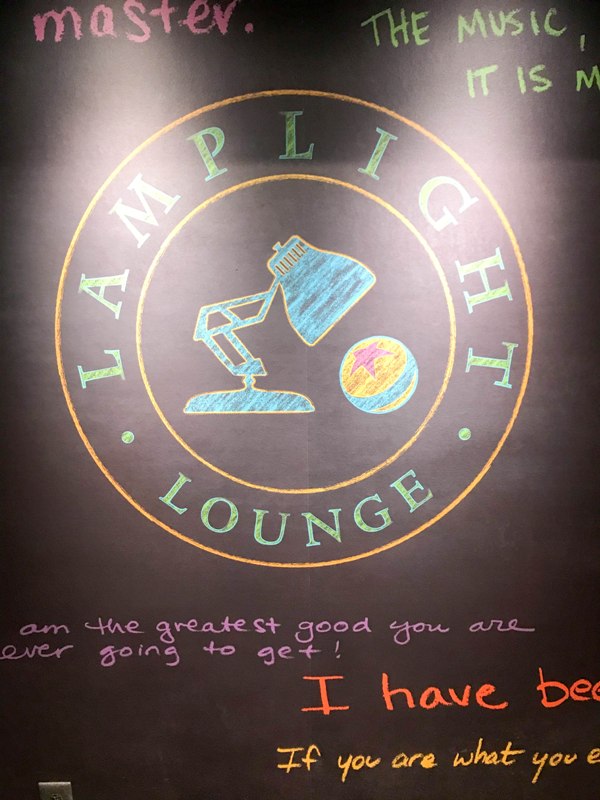 master.
THE MUSIC,
IT IS M
LAMPLIGHT
LOUNGE
am the greatest good you are
ever going to get!
I have bee
If you are what you e